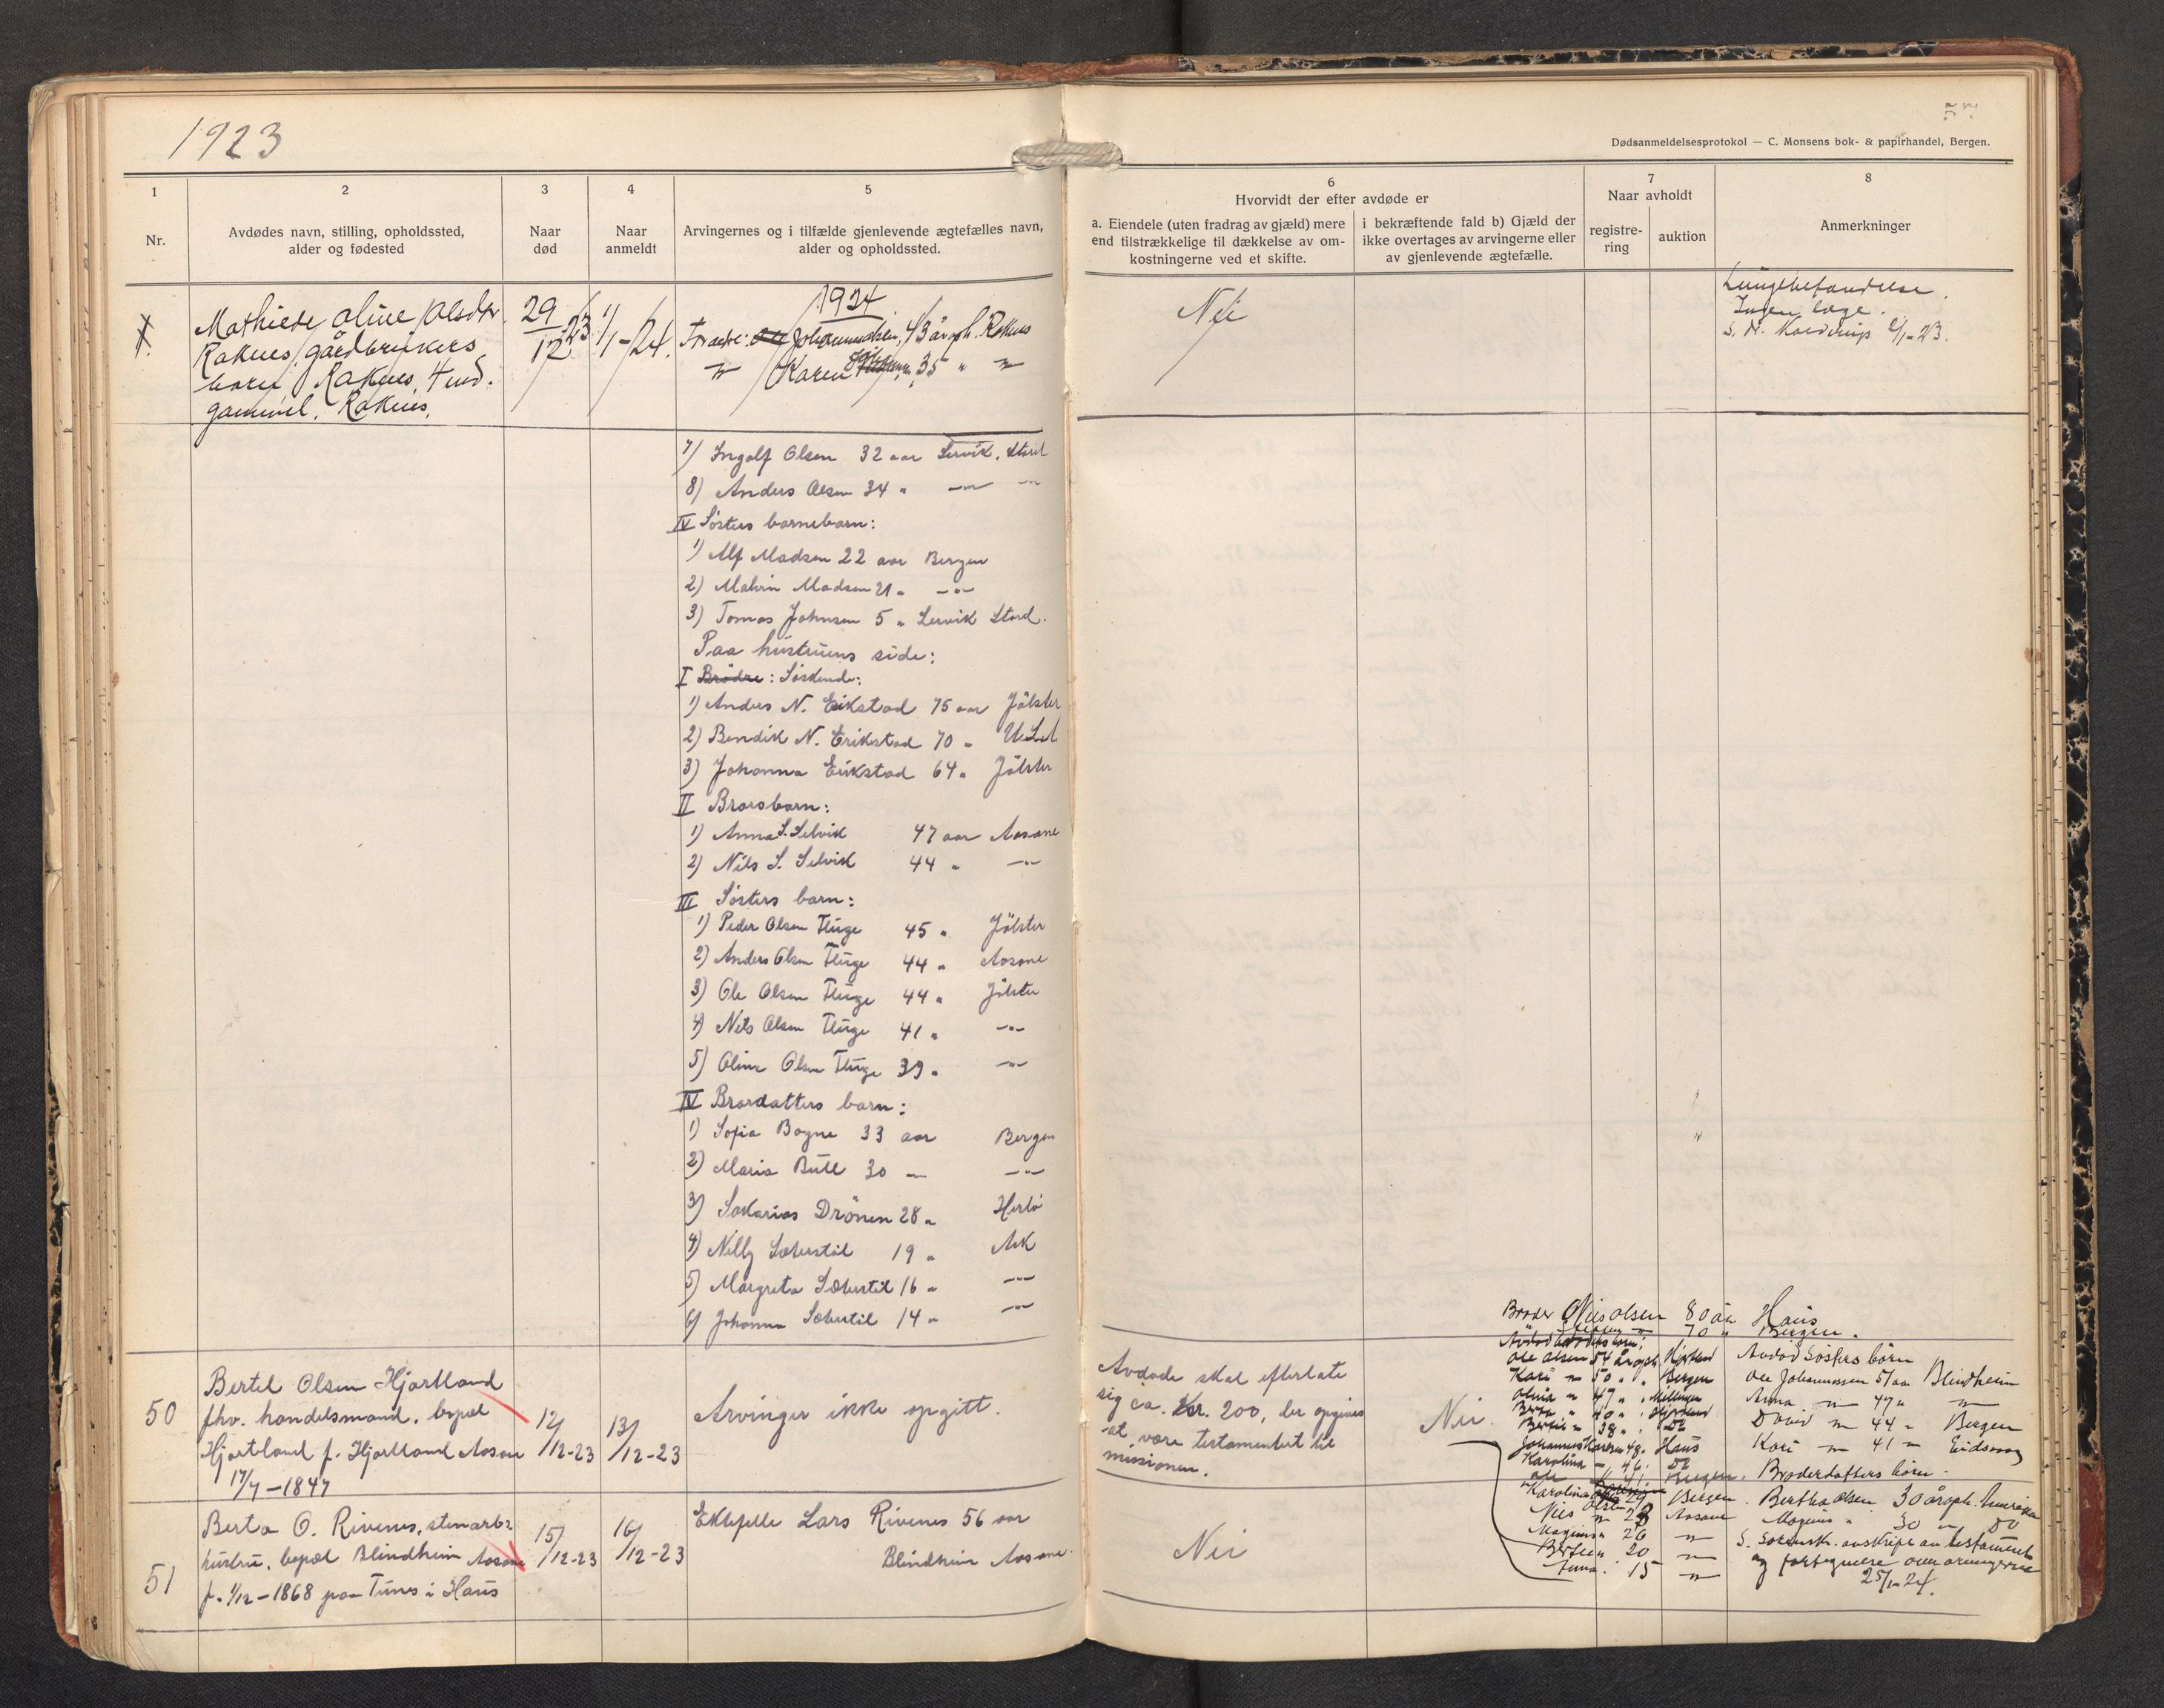 1923
Dødsanmeldelsesprotokol — C. Monsens bok- & papirhandel, Bergen.
1
Nr.
2
Avdødes navn, stilling, opholdssted,
alder og fødested
3
Naar
død
4
Naar
anmeldt
5
Arvingernes og i tilfælde gjenlevende ægtefælles navn,
alder og opholdssted.
6
Hvorvidt der efter avdøde er
a. Eiendele (uten fradrag av gjæld) mere
end tilstrækkelige til dækkelse av om-
kostningerne ved et skifte.
i bekræftende fald b) Gjæld der
ikke overtages av arvingerne eller
av gjenlevende ægtefælle.
7
Naar avholdt
registre-
ring
auktion
8
Anmerkninger
1.
Mathiede Oline Olsdtr.
Raknes, gårdbrukers
barn, Raknes, 4 md.
gammel. Raknes.
29/12 23
1/1-24.
1924
Johannesdsen, 43 år oph. Raknes
" Karen 35 " "
Nei
Lungebetændelse.
Ingen læge.
7) Ingolf Olsen 32 aar Lervik, Stord
8) Anders Olsen 34 " —"— —"—
IV Søsters barnebarn:
1) Alf Madsen 22 aar Bergen
2) Malvin Madsen 21 " —"—
3) Tomas Johnsen 5 " Lervik Stord.
Paa hustruens side:
I Brødre: Søskende:
1) Anders N. Erikstad 75 aar Jölster
2) Bendik N. Erikstad 70 " U.S.A
3) Johanna Erikstad 64 " Jölster
II Brorsbarn:
1) Anna S. Selvik 47 aar Aasane
2) Nils S. Selvik 44 " —"—
III Søsters barn:
1) Peder Olsen Fluge 45 " Jölster
2) Anders Olsen Fluge 44 " Aasane
3) Ole Olsen Fluge 44 " Jölster
4) Nils Olsen Fluge 41 " —"—
5) Oline Olsen Fluge 39 " —"—
IV Brordatters barn:
1) Sofia Bogne 33 aar Bergen
2) Maria Bull 30 — —"—
3) Sakarias Drönen 28 " Herlö
4) Nelly Sæterstöl 19 " Ask
5) Margreta Sæterstöl 16 " —"—
6) Johanna Sæterstöl 14 " —"—
50
Bertel Olsen Hjortland
fhv. handelsmand, bopæl
Hjortland f. Hjortland Aasane
17/7-1847
12/12-23
13/12-23
Arvinger ikke opgitt.
Avdøde skal efterlate
sig ca. Kr. 200, der opgives
at være testamentert til
missionen.
Nei.
Broder Nils Olsen 80 år Haus
70 " Bergen.
Ole Olsen 54 år oph. Hjortland
Kari " 50 " " Bergen
Olina " 47 "
Berta " 40 " Hjortland
38 " Do
Johannes 48 " Haus
Karolina — 46 " Do
Ole 41 " Bergen.
Karolina Olsen 29 Bergen.
Nils " 28 Aasane
Magnus " 26 "
Bertin " 20 "
Anna. 15 "
Avdød Søsters börn
Ole Johannessen 51 aar Blindheim
Anna " 47 " "
David " 44 " Bergen
Kari " 41 " Eidsvaag
Broderdatters börn.
Bertha Olsen 30 år oph. Amerika
Magnus " 30 " Do
S. avskrift av testament
og fortegnelse over arvingerne
25/1-24.
51
Berta O. Rivenes, stenarb.
hustru, bopæl Blindheim Aasane
f. 1/12-1868 paa Tunes i Haus
15/12-23
16/12-23
Ektefelle Lars Rivenes 56 aar
Blindheim Aasane.
Nei